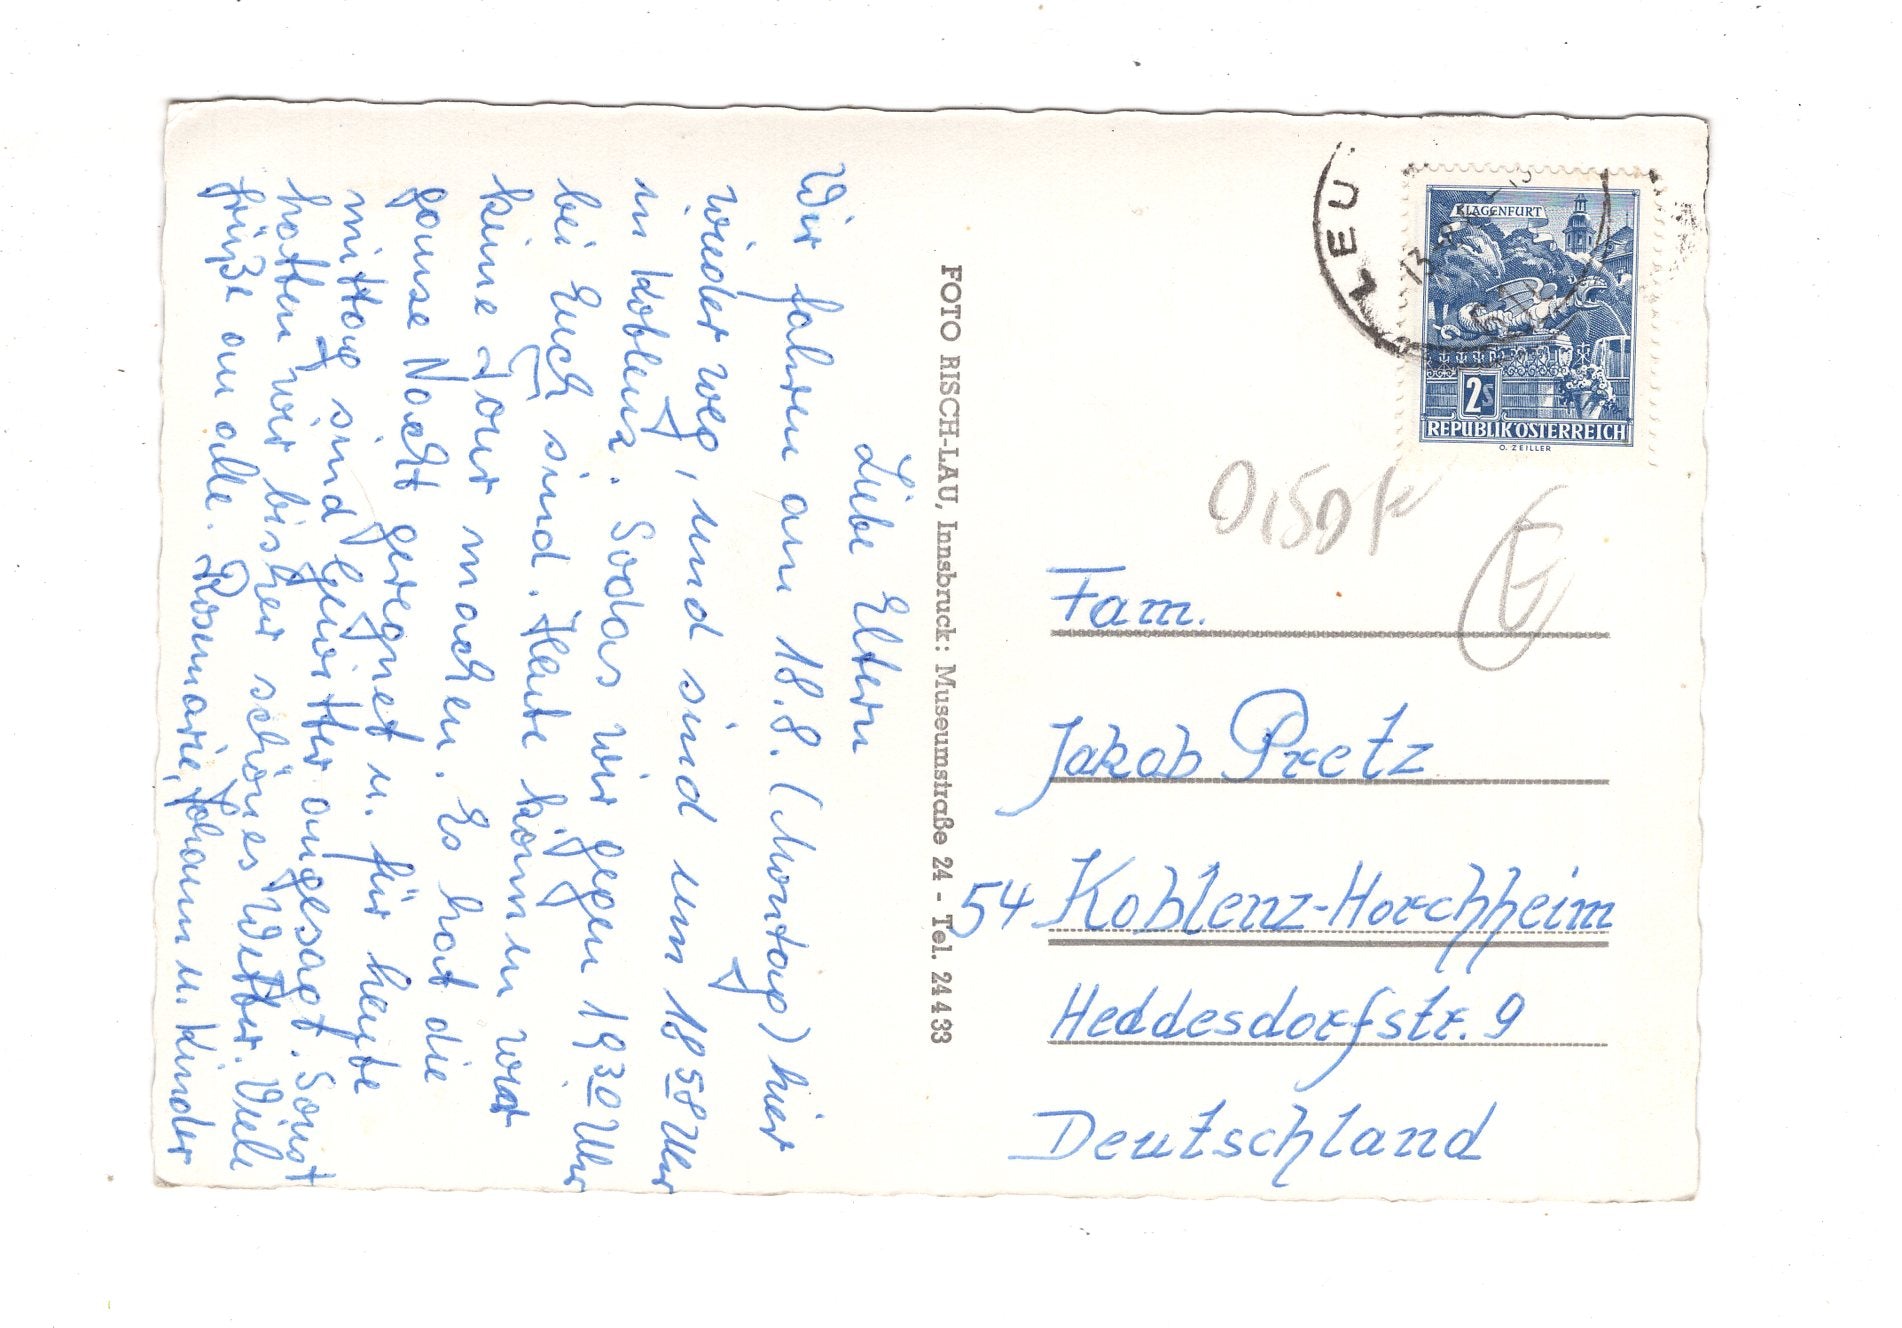 Liebe Eltern
Wir fahren am 18.8. (Montag) hier
wieder weg, und sind um 18 58 Uhr
in Koblenz. Sodas wir gegen 19 30 Uhr
bei Euch sind. Heute können wir
keine Tour machen. Es hat die
ganse Nacht geregnet u. für heute
mittag sind Gewitter angesagt. Sonst
hatten wir bisher schönes Wetter. Viele
Grüße an alle. Rosmarie, Johann u. Kinder
FOTO RISCH-LAU, Innsbruck: Museumstraße 24 - Tel. 24 4 33
LEU
13
KLAGENFURT
2S
REPUBLIK ÖSTERREICH
O. ZEILLER
Fam.
Jakob Pretz
54 Koblenz-Horchheim
Heddesdorfstr. 9
Deutschland